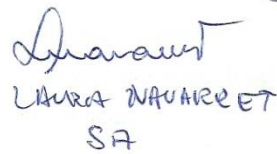 LAURA NAVARRET
SA